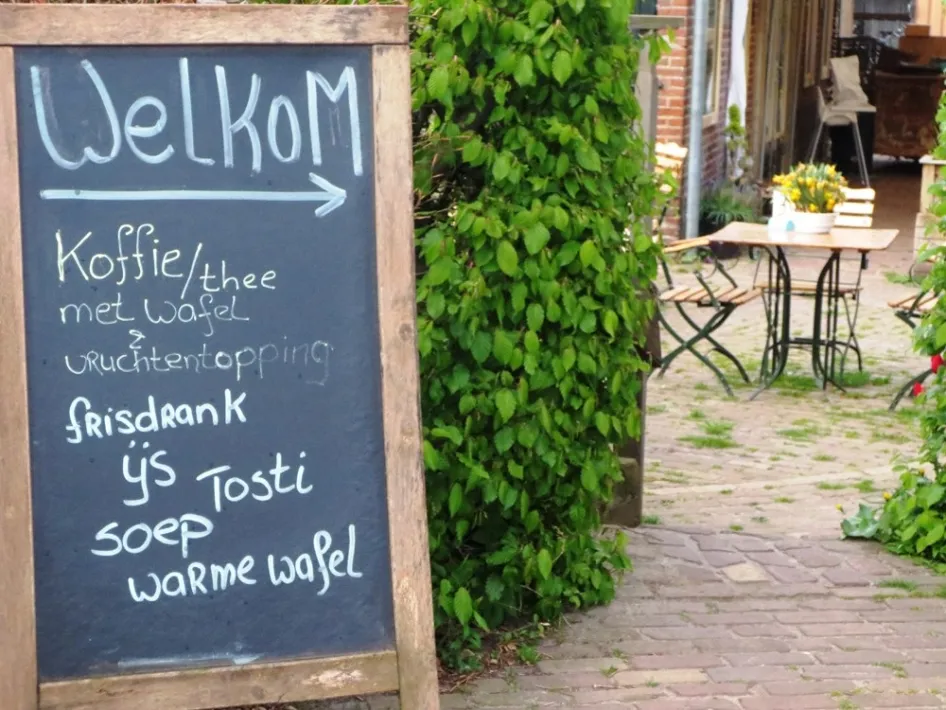 WelkoM
Koffie/thee
met wafel
&
vRuchtentopping
fRisdRanK
ijs Tosti
soep
waRme wafel